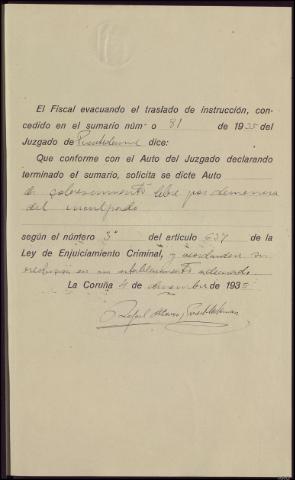 El Fiscal evacuando el traslado de instrucción, con-
cedido en el sumario núm- o 81 de 1935 del
Juzgado de Puentedeume dice:
Que conforme con el Auto del Juzgado declarando
terminado el sumario, solicita se dicte Auto
de sobreseimiento libre por demencia
del inculpado
según el número 3º del artículo 637 de la
Ley de Enjuiciamiento Criminal, y acordandose su
reclusión en un establecimiento adecuado.
La Coruña 4 de diciembre de 1935
Rafael Alonso